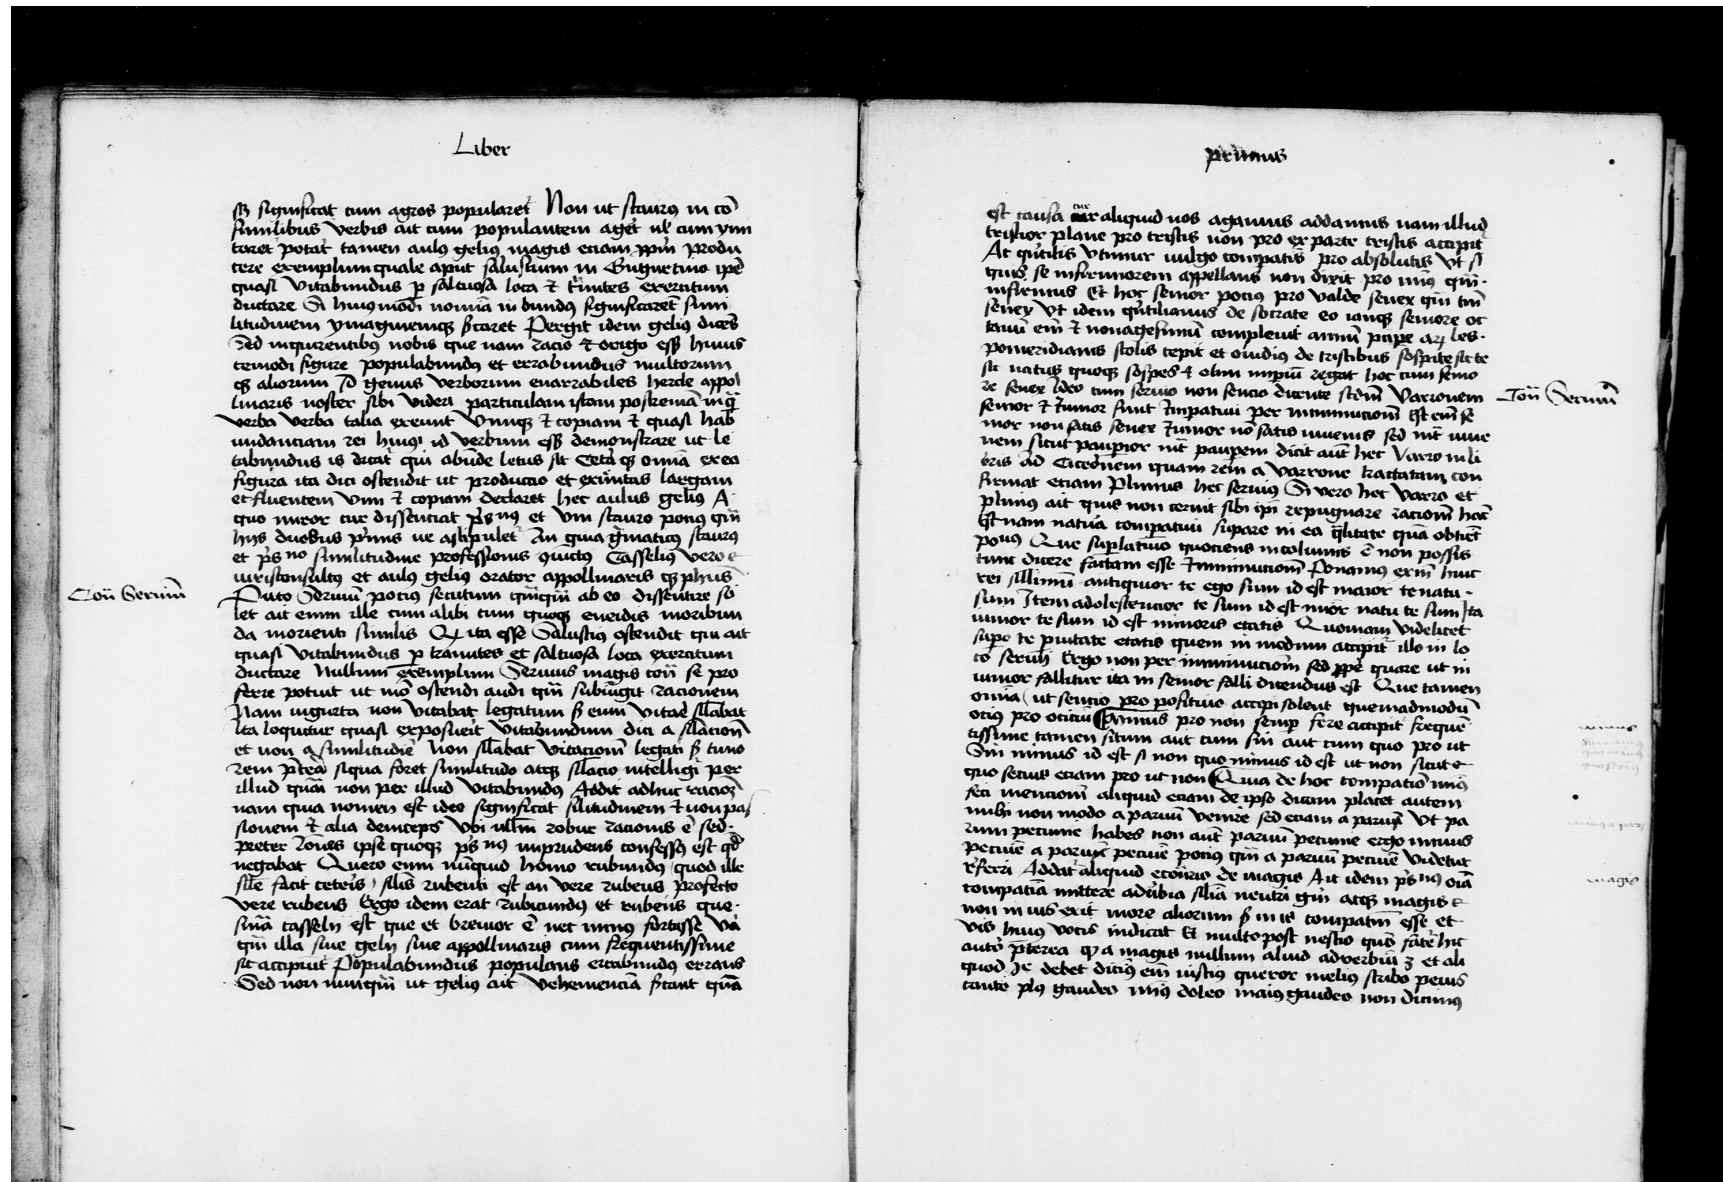 Liber
significat cum agros popularet Non ut scaurꝰ in cō
similibus verbis ait cum populantem aget vel cum vim
toret potat tamen aulꝰ geliꝰ magis eciam ppm produ
cere exemplum quale aput salustium in Gugurtino ipē
quasi vitabundus p saltuosa loca ⁊ tmites exercitum
ductare Si huiusmodi nomīa in bundꝰ significaret simi
litudinem ymaginemqꝫ Pergit idem geliꝰ dicēs
Sed inquirentibꝰ nobis que nam racio ⁊ origo essꝫ huius
cemodi figure populabundꝰ et errabundus multorum
qꝫ aliorum id genus verborum enarrabiles hercle appol
linaris noster sibi videri particulam istam postremā inqͥ
verba verba talia exeunt Vimqꝫ ⁊ copiam ⁊ quasi hab
undanciam rei huiꝰ id verbum essꝫ demonstrare ut le
tabundus is dicat qui abūde letus sit Cetaqꝫ omīa ex ea
figura ita dici ostendit ut productio et largam
et fluentem vim ⁊ copiam declaret hec aulus gelius A
quo miror cur dissenciat psnꝰ et vm scauro pociꝰ qm
hijs duobus pmis ue astipulet An quia gmaticꝰ scaurꝰ
et psno similitudine professionis Casselius vero
iurisconsultꝰ et aulꝰ geliꝰ orator appollinaris qꝫ phus
Con Seruiū
Puto Seruiū pociꝰ secutum qmqm ab eo dissentire so
let ait enim ille cum alibi tum quoqꝫ eneidis moribun
da morienti similis Qꝫ ita esse Salustiꝰ ostendit qui ait
quasi vitabundus p tramites et saltuosa loca exercitum
ductare Nullum exemplum Seruius magis con se pro
ferre potuit ut mō ostendi audi qm subiugit racionem
Nam iugurta non vitabat legatum sꝫ eum vitare sīlabat
Ita loquitur quasi exposuerit vitabundum dici a sīlacione
et non a similitudīe Non sīlabat vitacionē legati sꝫ timo
rem pterea siqua foret similitudo atqꝫ sīlacio intelligi per
illud quasi non per illud vitabundꝰ Addit adhuc racionē
nam quia nomen est ideo significat sīlitudinem ⁊ non pas
sionem ⁊ alia deinceps Vbi nllm robur racionis ē sed
preter rōnes ipse quoqꝫ psnꝰ imprudens confessꝰ est qd
negabat Quero enim nūquid homo rubundꝰ quod ille
sīle facit ceteris sīlis rubenti est an vere rubeus profecto
vere rubens Ergo idem erat rubicundꝰ et rubens que
snīa casselij est que et breuior ē nec minꝰ fortasse va
qm illa siue gelij siue appollinaris cum frequentissime
sic accipiunt Populabundus populans errabundus errans
Sed non nunqm ut gelius ait vehemenciā pstant quā
primus
est causa cur aliquid nos agamus addamus nam illud
tristior plane pro tristis non pro ex parte tristis accipit
At qutilis utimur uulgo compatis pro absolutis vt si
quis se infirmiorem appellans non dixit pro minꝰ qm
infirmus Et hoc senior pocius pro valde senex qm tm
senex Vt idem qutilianus de socrate eo ianqꝫ seniore oc
tauū em ⁊ nonagesimū compleuit annū pcipe les
pomeridianis scolis cepit et ouidiꝰ de tristibus sospite sit te
sit natus quoqꝫ sospes ⁊ olim impiū regat hoc cum senio
re senex Ideo cum seruio non sencio dicente scdm Varronem
Con Seruiū
senior ⁊ iunior sunt compatiui per imminucionē hꝫ em se
nior non satis senex ⁊ iunior nō satis iuuenis sed int iuue
nem sicut paupior int paupem dicit aut hec Varro in li
bris ad Ciceronem quam rem a varrone tractatam con
firmat eciam Plinius hec seruiꝰ Si vero hoc varro et
plinius ait quis non cernit sibi ipi repugnare racionē hāc
Est nam natura compatiui supare in ea qlitate quā obtiet
poīus Que suplatiuo quociens incolumis ē non possis
tunc dicere factam esse imminucionē Ponamꝰ exm huic
rei sīllimū antiquior te ego sum id est maior te natu
sum Item adolescencior te sum id est minor natu te sum Ita
iunior te sum id est minoris etatis Quoniam videlicet
supo te puitate etatis quem in modum accipit illo in lo
co seruiꝰ Ergo non per imminucionē sed ppe quare ut in
iunior fallitur ita in senior falli dicendus est Que tamen
omīa ut sencio pro posituo accipi solent quemadmodū
ociꝰ pro ocitiū Minus pro non semp fere accipit freque
tissime tamen situm aut cum sin aut cum quo pro ut
Sin minus id est si non quo minus id est ut non sicut
quo secius eciam pro ut non Quia de hoc compatio miꝰ
feci mencionē aliquid eciam de ipso dicam placet autem
mihi non modo a parum venire sed eciam a parum Vt pa
rum pecunie habes non aut paruū pecunie ergo minus
pecunie a parum pecunie pocius qm a paruū pecunie videtur
referri Addat aliquid econrio de magis Ait idem psnꝰ oīa
magis
compatiā mittere aduerbia sīlia neutri gn atqꝫ magis
non in ius exit more aliorum sꝫ in is compatiuū esse et
vis huiꝰ vocis indicat Et multo post nescio quō fate hic
auto pterea qꝫ a magis nullum aliud aduerbiū ꝫ et ali
quod debet diciꝰ em iustiꝰ queror melius scribo peius
canto plꝰ gaudeo miꝰ doleo maiꝰ gaudeo non dicimꝰ